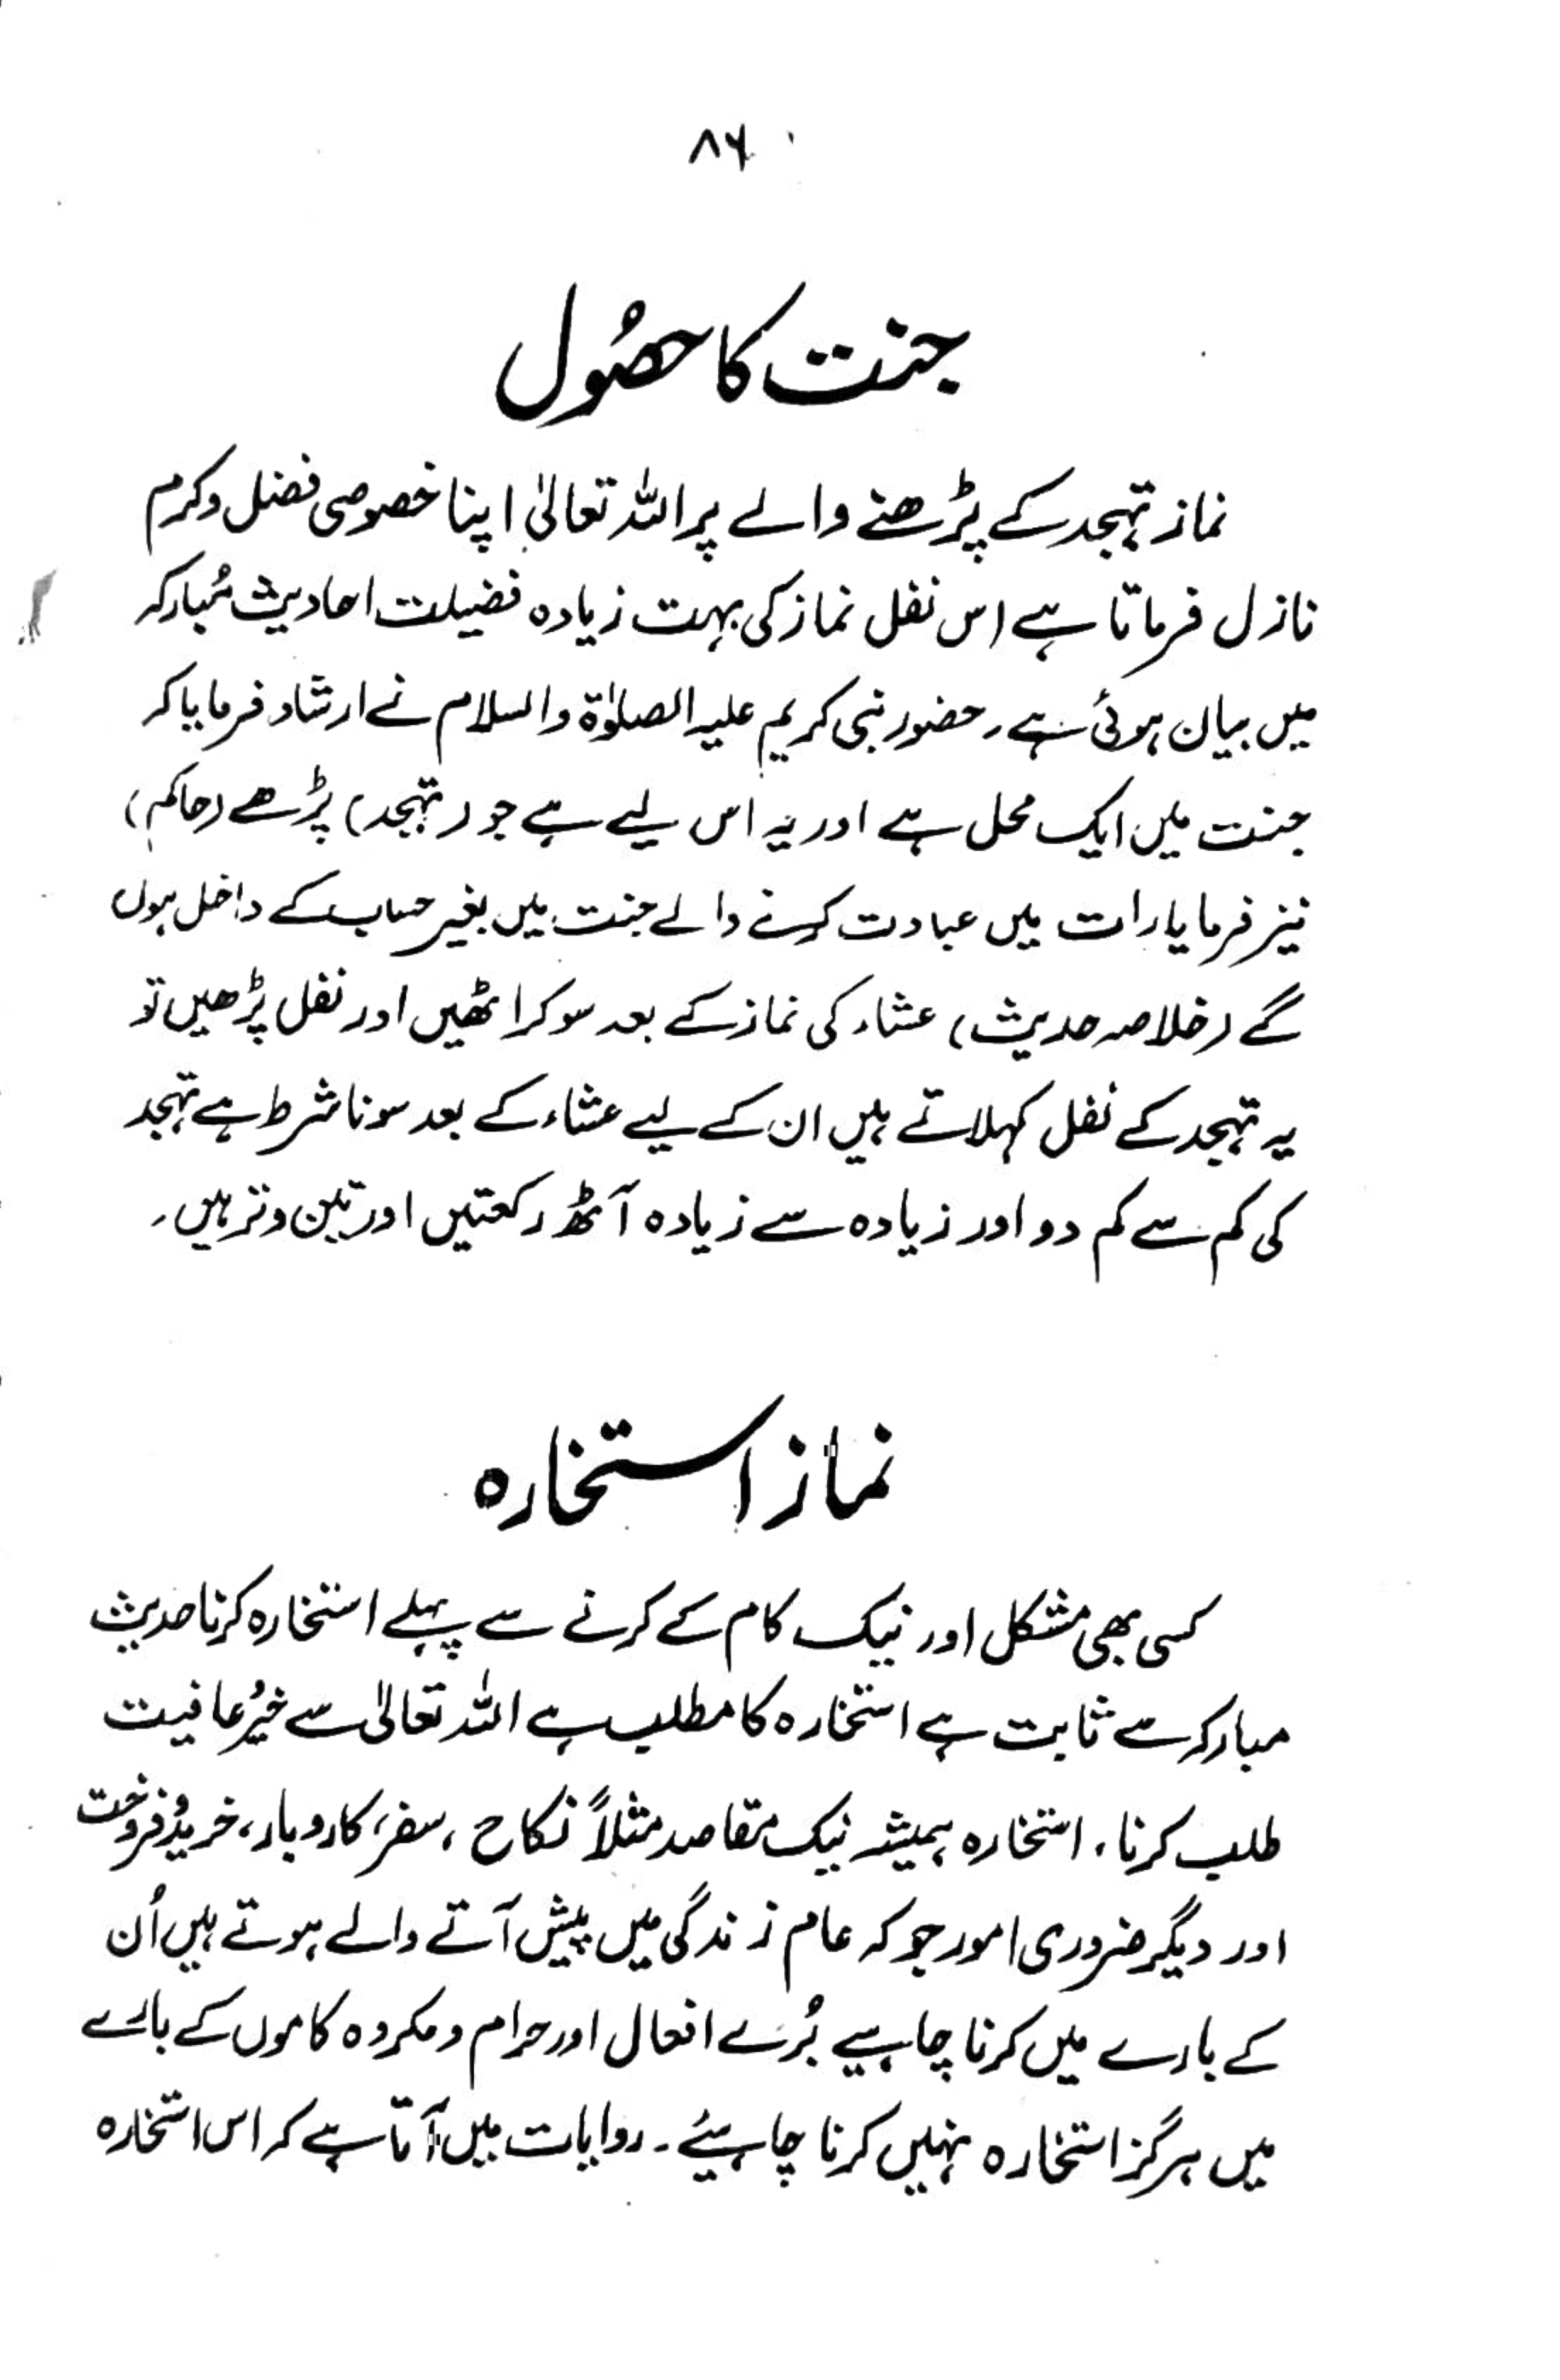 ۸۶
جنت کا حصُول
نماز تہجد کے پڑھنے والے پر اللہ تعالیٰ اپنا خصوصی فضل وکرم
نازل فرماتا ہے اس نفل نماز کی بہت زیادہ فضیلت احادیث مُبارکہ
میں بیان ہوئی ہے۔ حضور نبی کریم علیہ الصلوٰۃ والسلام نے ارشاد فرمایا کہ
جنت میں ایک محل ہے اور یہ اس لیے ہے جو (تہجد) پڑھے (حاکم)
نیز فرمایا رات میں عبادت کرنے والے جنت میں بغیر حساب کے داخل ہوں
گے (خلاصہ حدیث) عشاء کی نماز کے بعد سو کر اٹھیں اور نفل پڑھیں تو
یہ تہجد کے نفل کہلاتے ہیں ان کے لیے عشاء کے بعد سونا شرط ہے تہجد
کی کم سے کم دو اور زیادہ سے زیادہ آٹھ رکعتیں اور تین وتر ہیں۔
نماز استخارہ
کسی بھی مشکل اور نیک کام کے کرنے سے پہلے استخارہ کرنا حدیث
مبارکہ سے ثابت ہے استخارہ کا مطلب ہے اللہ تعالیٰ سے خیرُ عافیت
طلب کرنا، استخارہ ہمیشہ نیک مقاصد مثلاً نکاح، سفر، کاروبار، خرید و فروخت
اور دیگر ضروری امور جو کہ عام زندگی میں پیش آتے والے ہوتے ہیں اُن
کے بارے میں کرنا چاہیے بُرے افعال اور حرام و مکروہ کاموں کے بارے
میں ہرگز استخارہ نہیں کرنا چاہیئے۔ روایات میں آتا ہے کہ اس استخارہ